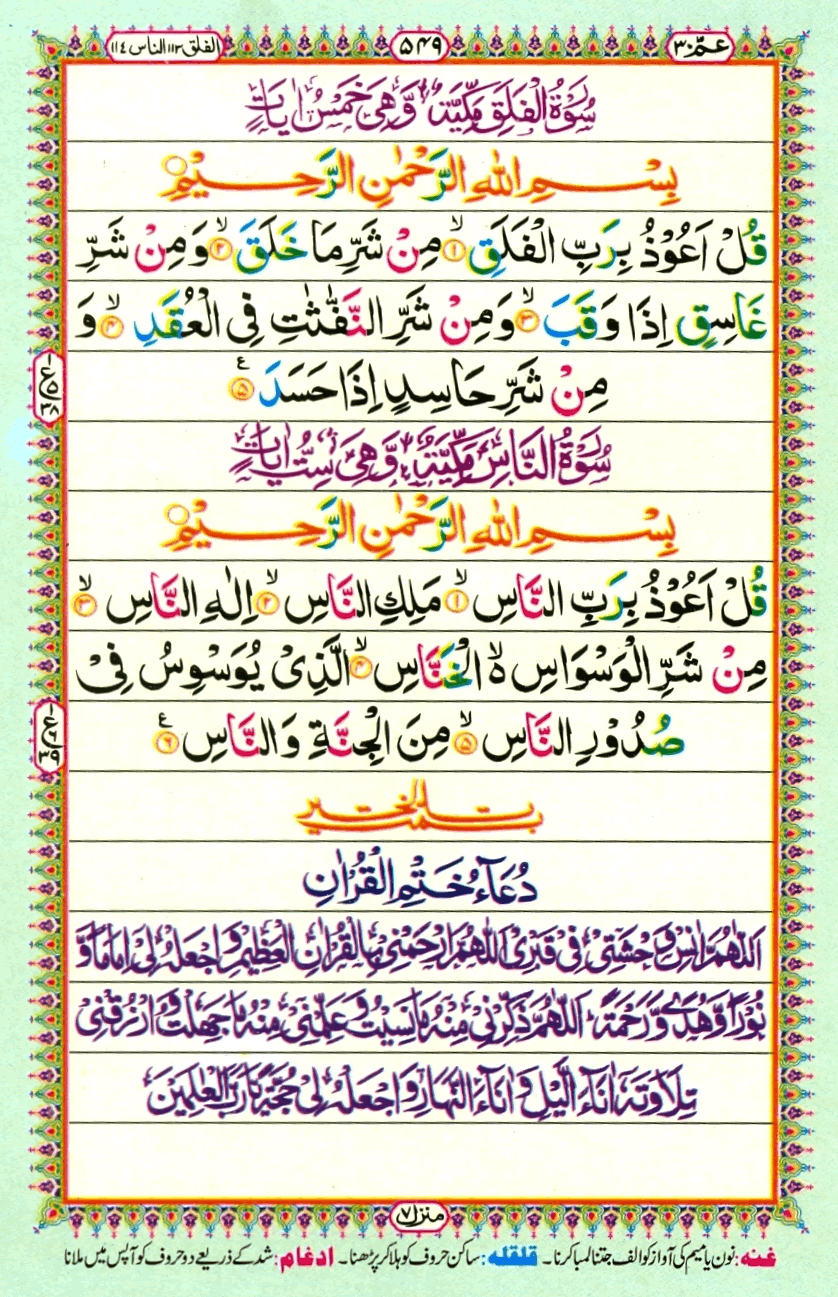 عمّ ٣٠
٥٤٩
الفلق ١١٣ الناس ١١٤
سُوْرَةُ الْفَلَقِ مَكِّيَّةٌ وَّهِيَ خَمْسُ اٰيَاتٍ
بِسْمِ اللهِ الرَّحْمٰنِ الرَّحِيْمِ
قُلْ اَعُوْذُ بِرَبِّ الْفَلَقِ ۙ﴿١﴾ مِنْ شَرِّ مَا خَلَقَ ۙ﴿٢﴾ وَمِنْ شَرِّ
غَاسِقٍ اِذَا وَقَبَ ۙ﴿٣﴾ وَمِنْ شَرِّ النَّفّٰثٰتِ فِى الْعُقَدِ ۙ﴿٤﴾ وَ
مِنْ شَرِّ حَاسِدٍ اِذَا حَسَدَ ﴿٥﴾
سُوْرَةُ النَّاسِ مَكِّيَّةٌ وَّهِيَ سِتُّ اٰيَاتٍ
بِسْمِ اللهِ الرَّحْمٰنِ الرَّحِيْمِ
قُلْ اَعُوْذُ بِرَبِّ النَّاسِ ۙ﴿١﴾ مَلِكِ النَّاسِ ۙ﴿٢﴾ اِلٰهِ النَّاسِ ۙ﴿٣﴾
مِنْ شَرِّ الْوَسْوَاسِ ۙ الْخَنَّاسِ ۙ﴿٤﴾ الَّذِىْ يُوَسْوِسُ فِىْ
صُدُوْرِ النَّاسِ ۙ﴿٥﴾ مِنَ الْجِنَّةِ وَالنَّاسِ ﴿٦﴾
دُعَآءُ خَتْمِ الْقُرْاٰنِ
اَللّٰهُمَّ اٰنِسْ وَحْشَتِىْ فِىْ قَبْرِىْ اَللّٰهُمَّ ارْحَمْنِىْ بِالْقُرْاٰنِ الْعَظِيْمِ وَاجْعَلْهُ لِىْ اِمَامًا وَّ
نُوْرًا وَّهُدًى وَّرَحْمَةً اَللّٰهُمَّ ذَكِّرْنِىْ مِنْهُ مَا نَسِيْتُ وَعَلِّمْنِىْ مِنْهُ مَا جَهِلْتُ وَارْزُقْنِىْ
تِلَاوَتَهٗ اٰنَآءَ الَّيْلِ وَاٰنَآءَ النَّهَارِ وَاجْعَلْهُ لِىْ حُجَّةً يَّا رَبَّ الْعٰلَمِيْنَ
منزل ٧
غنہ: نون یا میم کی آواز کو الف جتنا لمبا کرنا۔ قلقلہ: ساکن حروف کو ہلا کر پڑھنا۔ ادغام: شد کے ذریعے دو حروف کو آپس میں ملانا